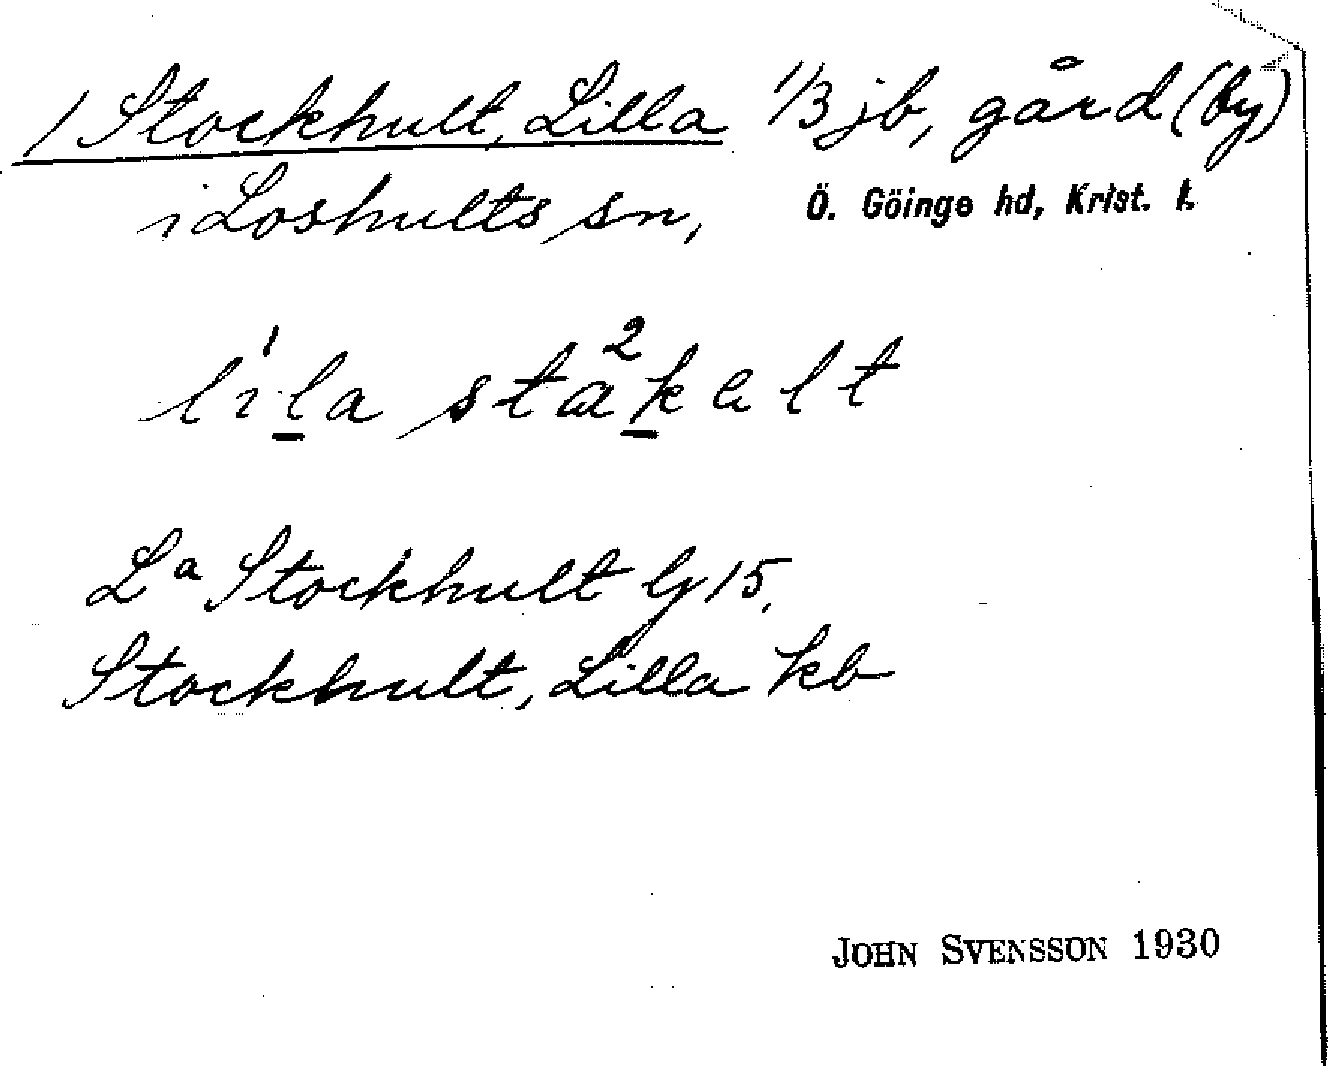 1 Stockhult, Lilla 1/3 jb, gård (by)
i Loshults sn, Ö. Göinge hd, Krist. l.
li¹la sta²kalt
Lª Stockhult G 15.
Stockhult, Lilla kb
JOHN SVENSSON 1930